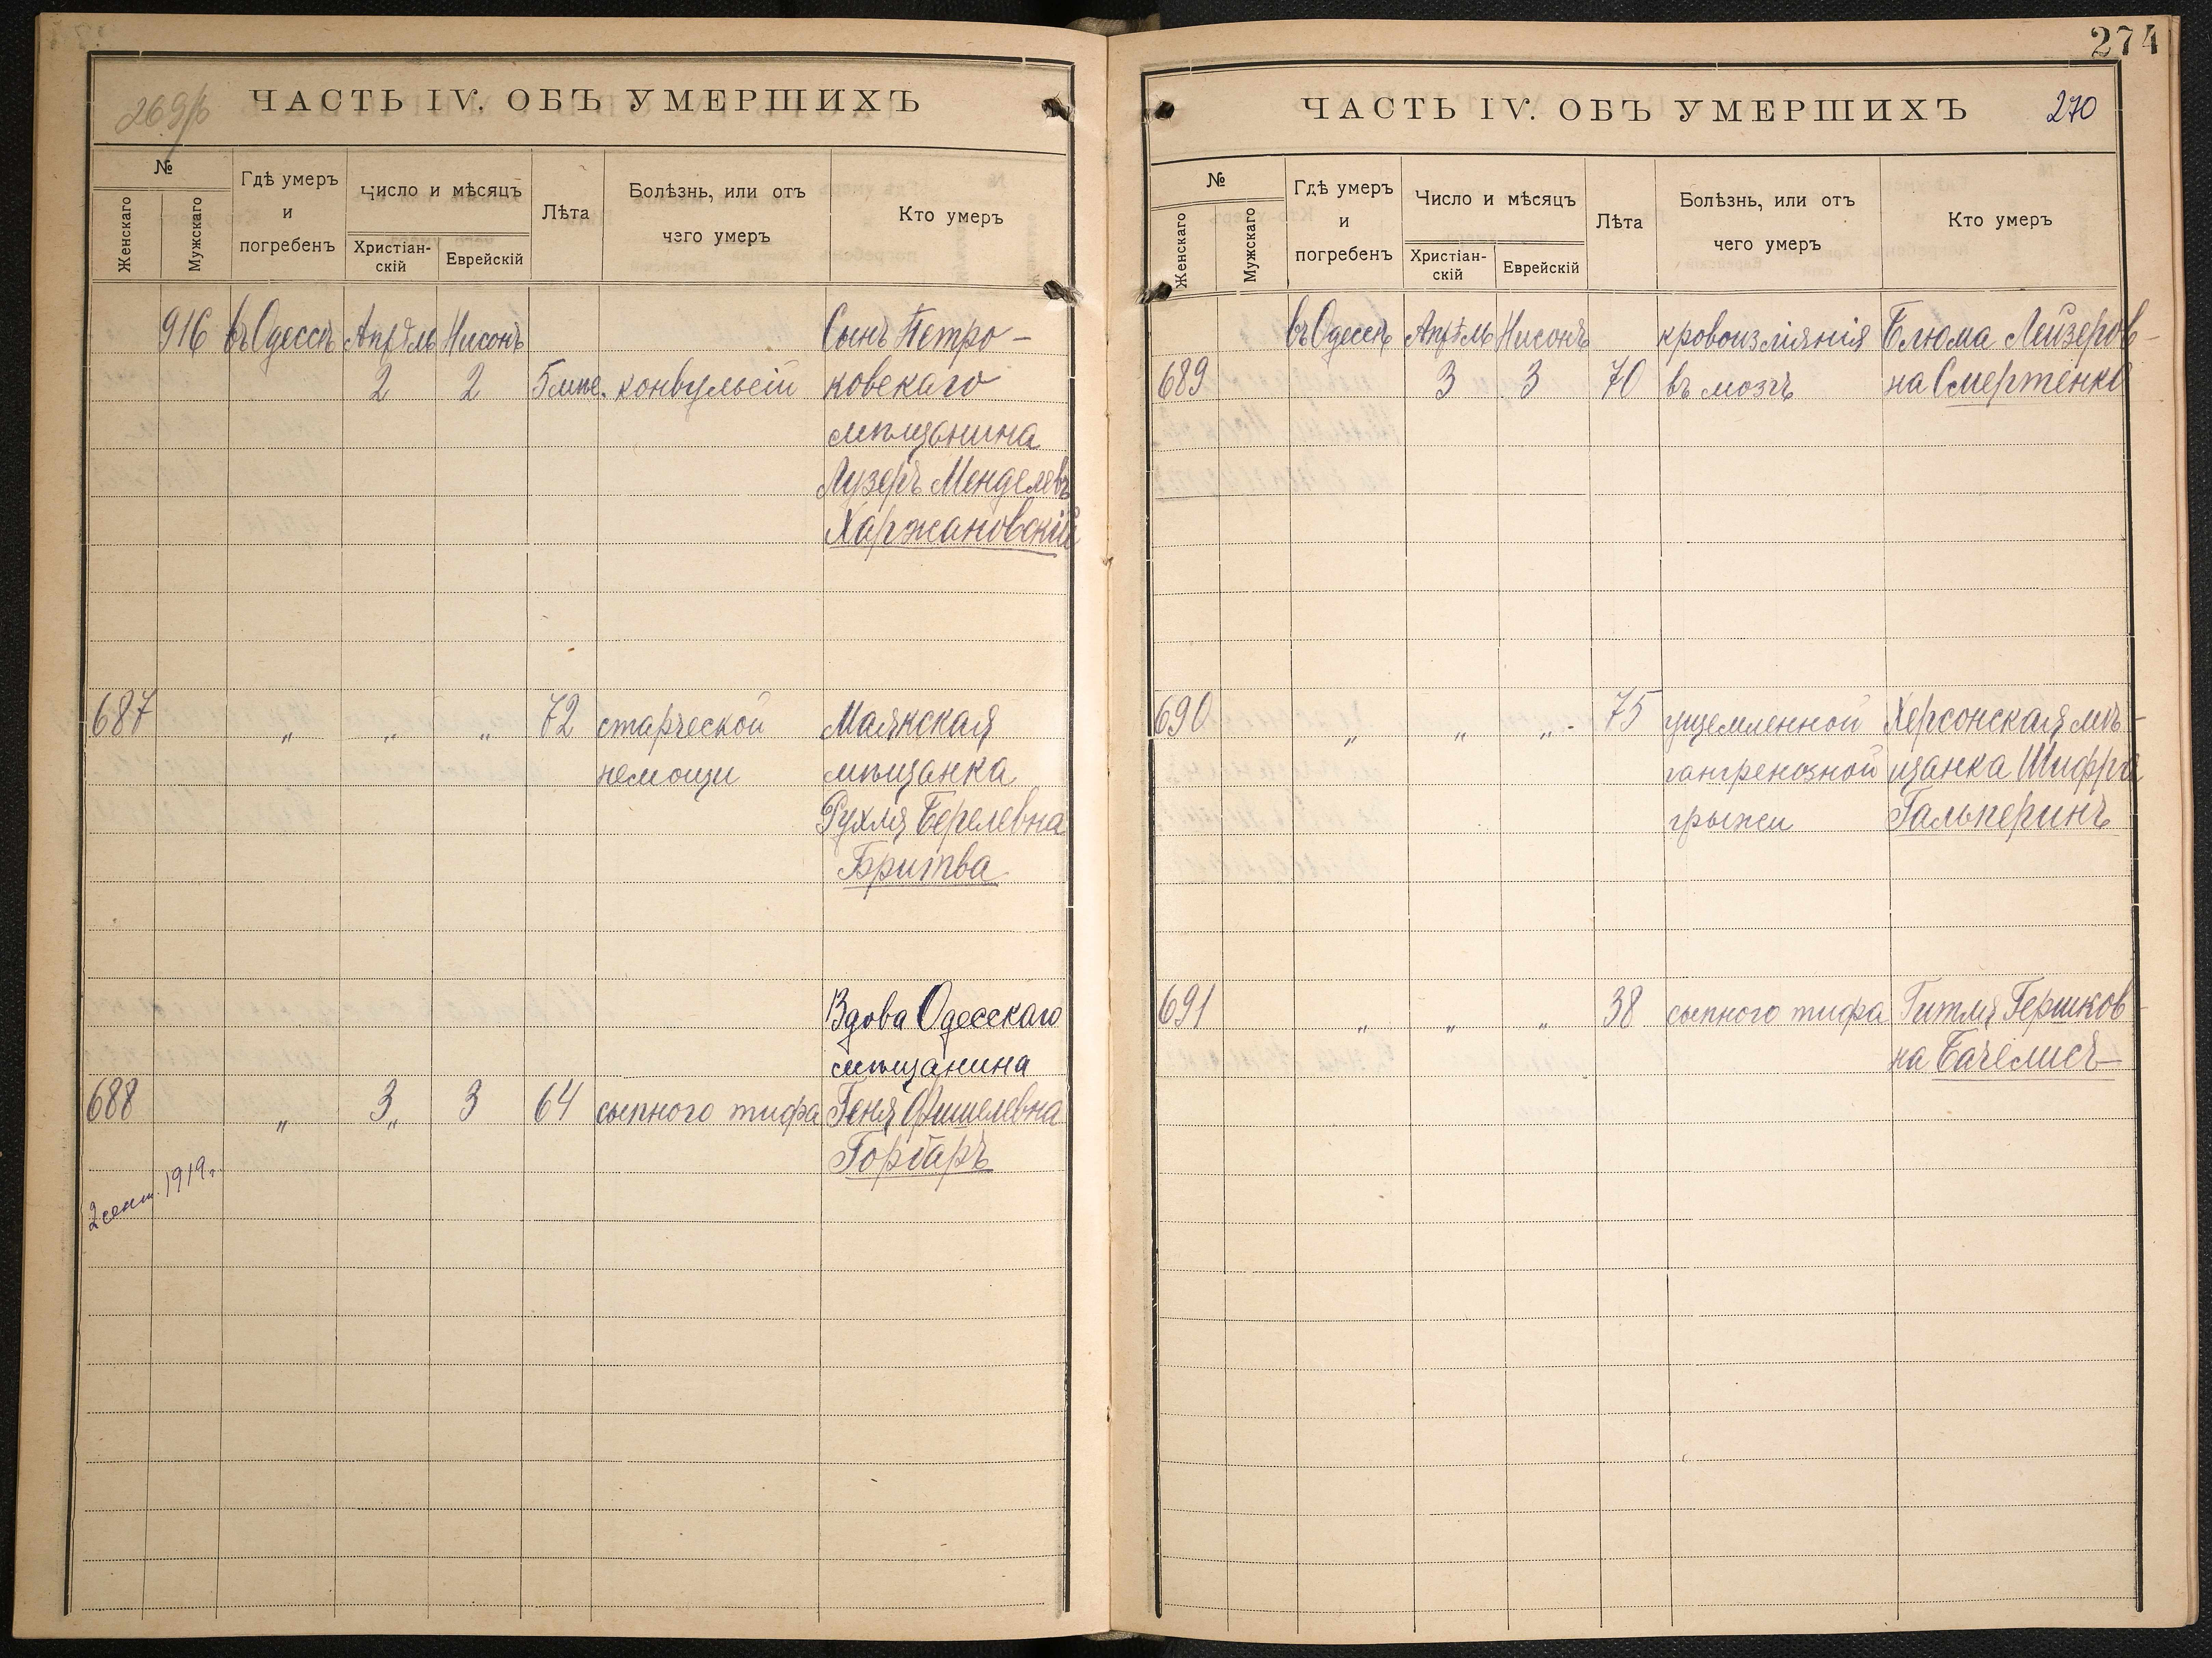 269/б
ЧАСТЬ IV. ОБЪ УМЕРШИХЪ
№
Женскаго
Мужскаго
Гдѣ умеръ
и
погребенъ
Число и мѣсяцъ
Христіан-
скій
Еврейскій
Лѣта
Болѣзнь, или отъ
чего умеръ
Кто умеръ
916 въ Одессѣ Апрѣль Нисонъ Сынъ Петро-
2 2 5 мѣс. конвульсій ковскаго
мѣщанина
Лузеръ Менделевъ
Харжановскій
687 „ „ „ 72 старческой Маякская
немощи мѣщанка
Рухля Берелевна
Бритва
Вдова Одесскаго
мѣщанина
688 „ 3„ 3 64 сыпного тифа Геня Фишелевна
Горбаръ
2 сент. 1919 г.
274
ЧАСТЬ IV. ОБЪ УМЕРШИХЪ 270
№
Женскаго
Мужскаго
Гдѣ умеръ
и
погребенъ
Число и мѣсяцъ
Христіан-
скій
Еврейскій
Лѣта
Болѣзнь, или отъ
чего умеръ
Кто умеръ
въ Одессѣ Апрѣль Нисонъ кровоизліянія Блюма Лейзеров-
689 3 3 70 въ мозгъ на Смертенко
690 „ „ „ 75 ущемленной Херсонская мѣ-
гангренозной щанка Шифра
грыжи Гальперинъ
691 „ „ „ 38 сыпного тифа Гитля Гершков-
на Бачелисъ